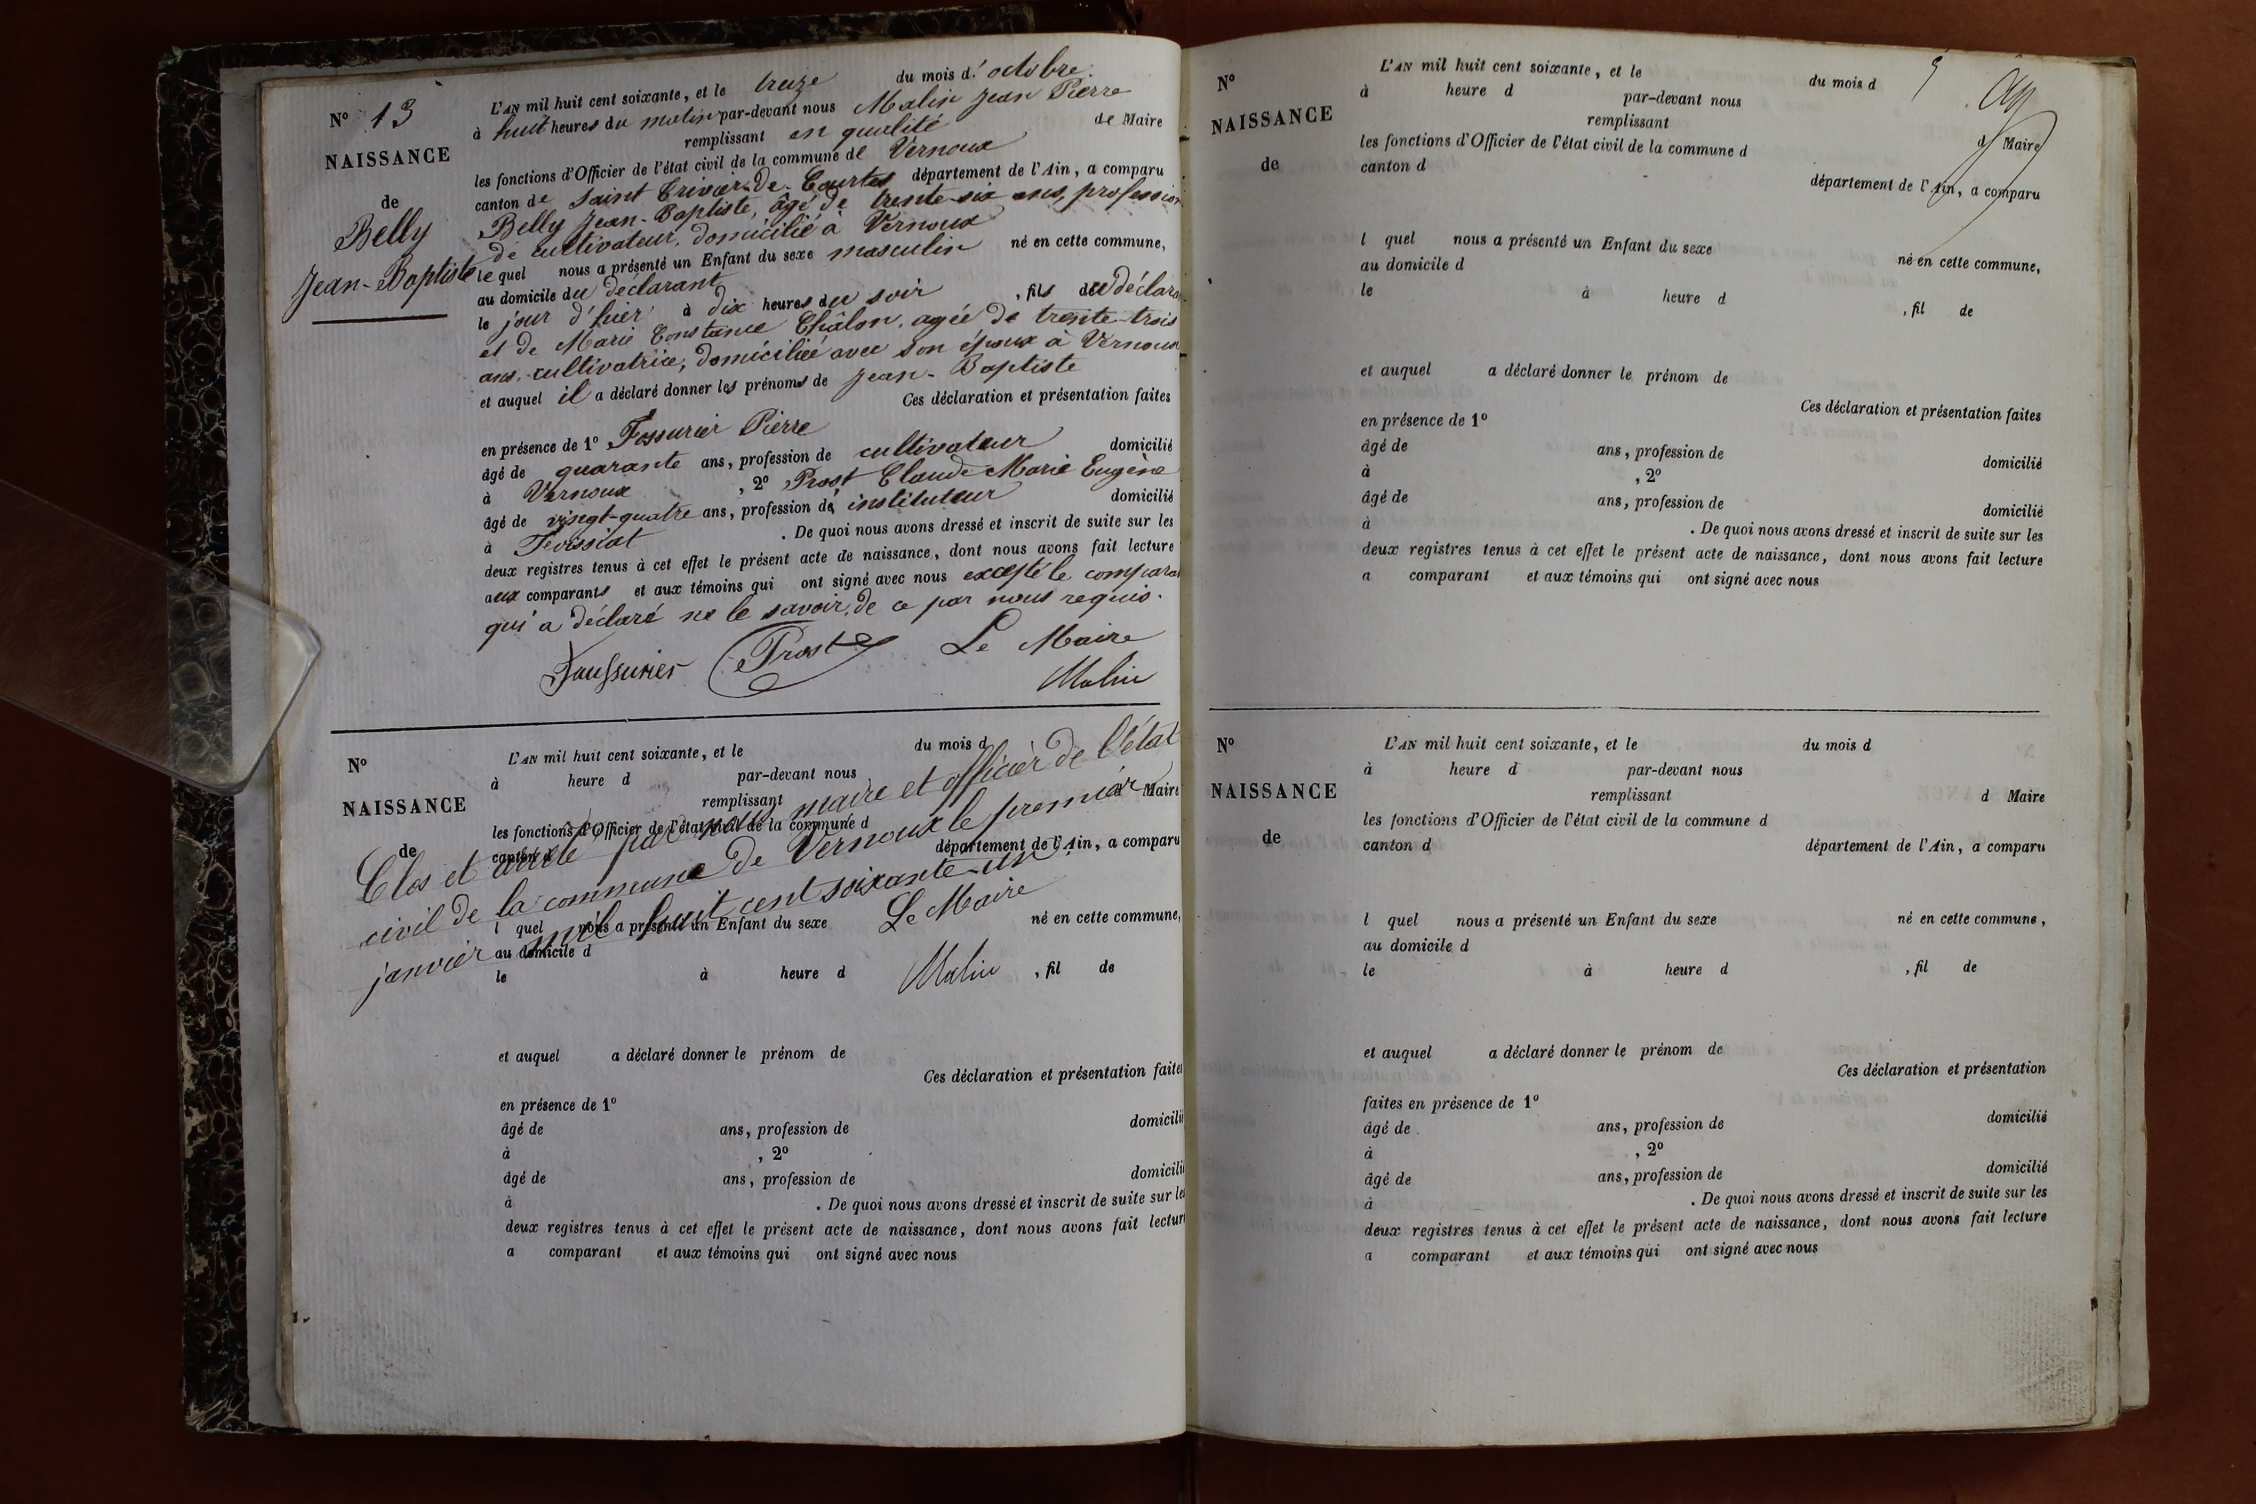 N° 13
NAISSANCE
de
Belly
Jean-Baptiste
L'AN mil huit cent soixante, et le treize du mois d'octobre
à huit heures du matin par-devant nous Malin Jean Pierre
remplissant en qualité de Maire
les fonctions d'Officier de l'état civil de la commune de Vernoux
canton de Saint Trivier-de-Courtes département de l'Ain, a comparu
Belly Jean-Baptiste, âgé de trente-six ans, profession
de cultivateur, domicilié à Vernoux
lequel nous a présenté un Enfant du sexe masculin né en cette commune,
au domicile du déclarant
le jour d'hier à dix heures du soir, fils du déclara
et de Marie Constance Châlon, agée de trente-trois
ans, cultivatrice, domiciliée avec son époux à Vernoux
et auquel il a déclaré donner les prénoms de Jean-Baptiste
Ces déclaration et présentation faites
en présence de 1° Fossurier Pierre
âgé de quarante ans, profession de cultivateur domicilié
à Vernoux, 2° Prost Claude Marie Eugène
âgé de vingt-quatre ans, profession de instituteur domicilié
à Foissiat. De quoi nous avons dressé et inscrit de suite sur les
deux registres tenus à cet effet le présent acte de naissance, dont nous avons fait lecture
aux comparants et aux témoins qui ont signé avec nous excepté le compara
qui a déclaré ne le savoir, de ce par nous requis.
Faussurier Prost Le Maire
Malin
N°
NAISSANCE
de
L'AN mil huit cent soixante, et le du mois d
à heure d par-devant nous
remplissant d Maire
les fonctions d'Officier de l'état civil de la commune d
canton d département de l'Ain, a comparu
Clos et arrêté par nous maire et officier de l'état
civil de la commune de Vernoux le premier
janvier mil huit cent soixante-un.
Le Maire
Malin
l quel nous a présenté un Enfant du sexe né en cette commune,
au domicile d
le à heure d , fil de
et auquel a déclaré donner le prénom de
Ces déclaration et présentation faites
en présence de 1°
âgé de ans, profession de domicilié
à , 2°
âgé de ans, profession de domicilié
à . De quoi nous avons dressé et inscrit de suite sur les
deux registres tenus à cet effet le présent acte de naissance, dont nous avons fait lecture
a comparant et aux témoins qui ont signé avec nous
N°
NAISSANCE
de
L'AN mil huit cent soixante, et le du mois d
à heure d par-devant nous
remplissant d Maire
les fonctions d'Officier de l'état civil de la commune d
canton d département de l'Ain, a comparu
l quel nous a présenté un Enfant du sexe né en cette commune,
au domicile d
le à heure d , fil de
et auquel a déclaré donner le prénom de
Ces déclaration et présentation faites
en présence de 1°
âgé de ans, profession de domicilié
à , 2°
âgé de ans, profession de domicilié
à . De quoi nous avons dressé et inscrit de suite sur les
deux registres tenus à cet effet le présent acte de naissance, dont nous avons fait lecture
a comparant et aux témoins qui ont signé avec nous
N°
NAISSANCE
de
L'AN mil huit cent soixante, et le du mois d
à heure d par-devant nous
remplissant d Maire
les fonctions d'Officier de l'état civil de la commune d
canton d département de l'Ain, a comparu
l quel nous a présenté un Enfant du sexe né en cette commune,
au domicile d
le à heure d , fil de
et auquel a déclaré donner le prénom de
Ces déclaration et présentation
faites en présence de 1°
âgé de ans, profession de domicilié
à , 2°
âgé de ans, profession de domicilié
à . De quoi nous avons dressé et inscrit de suite sur les
deux registres tenus à cet effet le présent acte de naissance, dont nous avons fait lecture
a comparant et aux témoins qui ont signé avec nous